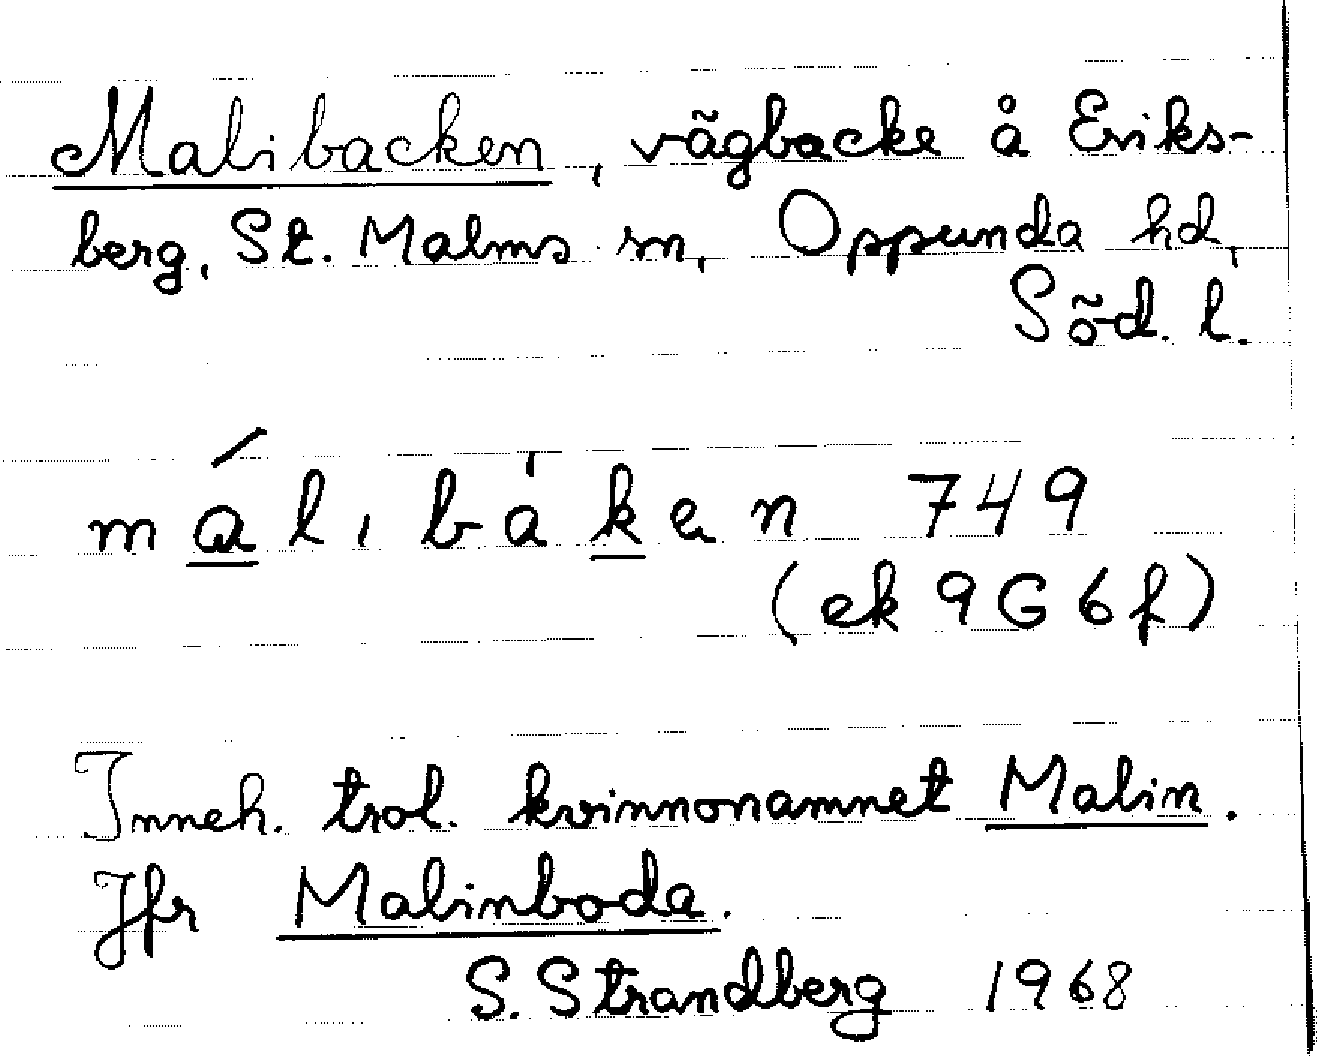 Malibacken, vägbacke å Eriks-
berg, St. Malms sn, Oppunda hd,
Söd. l.
málibàken 749
(ek 9G6f)
Inneh. trol. kvinnonamnet Malin.
Jfr Malinboda.
S. Strandberg 1968